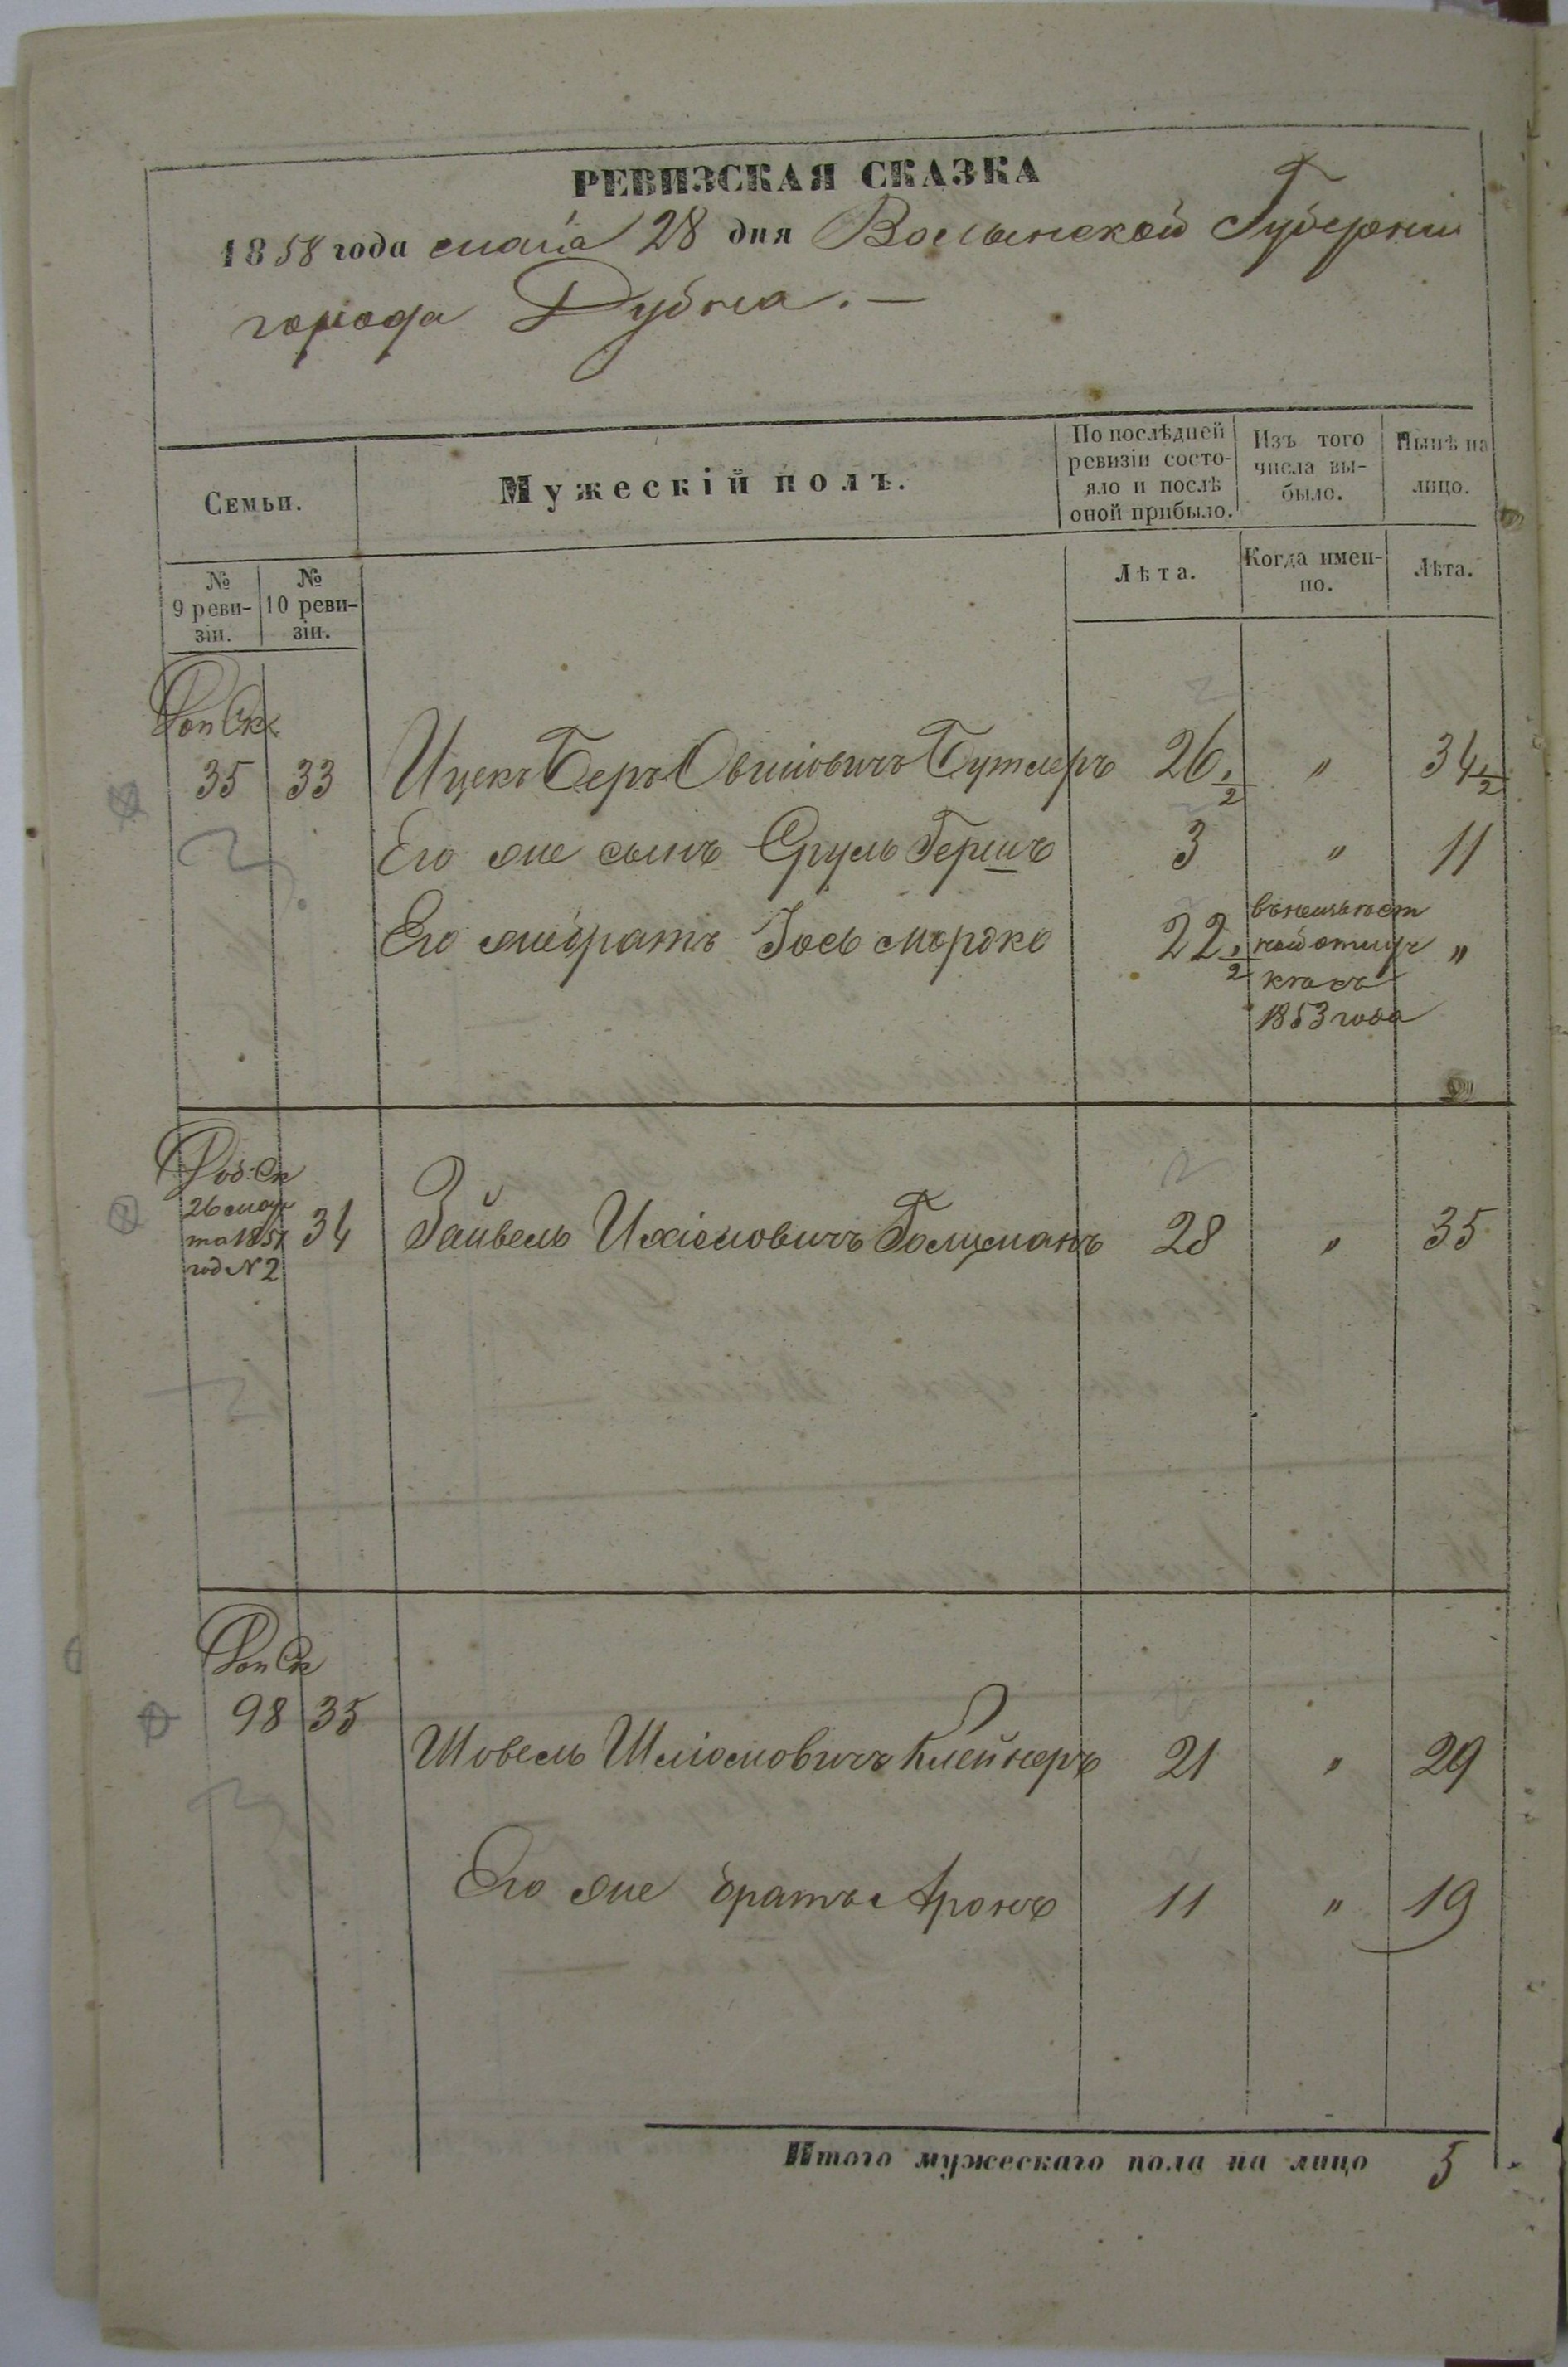 РЕВИЗСКАЯ СКАЗКА
1858 года мaiя 28 дня Волынской Губерніи
города Дубна. —
Семьи.
Мужескій полъ.
По послѣдней ревизіи состо-
яло и послѣ
оной прибыло.
Изъ того
числа вы-
было.
Нынѣ на
лицо.
№
9 реви-
зіи.
№
10 реви-
зіи.
Лѣта.
Когда имен-
но.
Лѣта.
Доп Ск
35 33 Ицекъ Беръ Овшіовичъ Бутмеръ 26 1/2 " 34 1/2
Его же сынъ Сруль Гершъ 3 " 11
Его же братъ Іось Мордко 22 1/2 "
въ неизвѣст
ной отлуч
кѣ съ
1853 года
Доб. Ск
26 мар
та 1851
год N 2
34 Зайвель Ихіомовичъ Голцманъ 28 " 35
Доп Ск
98 35
Шовель Шліомовичъ Клейнеръ 21 " 29
Его же братъ Аронъ 11 " 19
Итого мужескаго пола на лицо 5